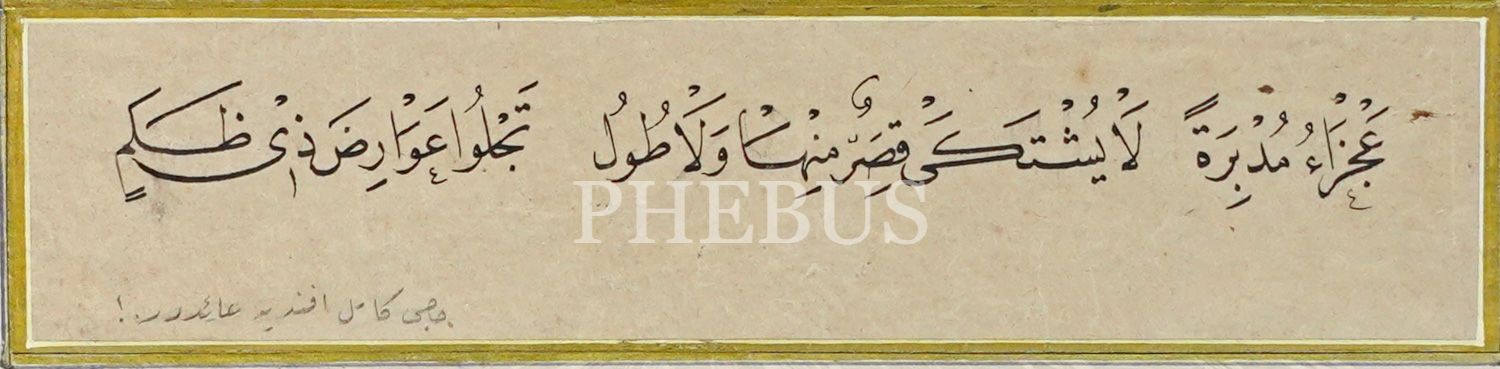 عَجْزَاءُ مُدْبِرَةً لَا يُشْتَكَى قِصَرٌ مِنْهَا وَلَا طُولُ تَجْلُوا عَوَارِضَ ذِىْ ظَلَمٍ
PHEBUS
حاجى كامل افنديه عائددر. !